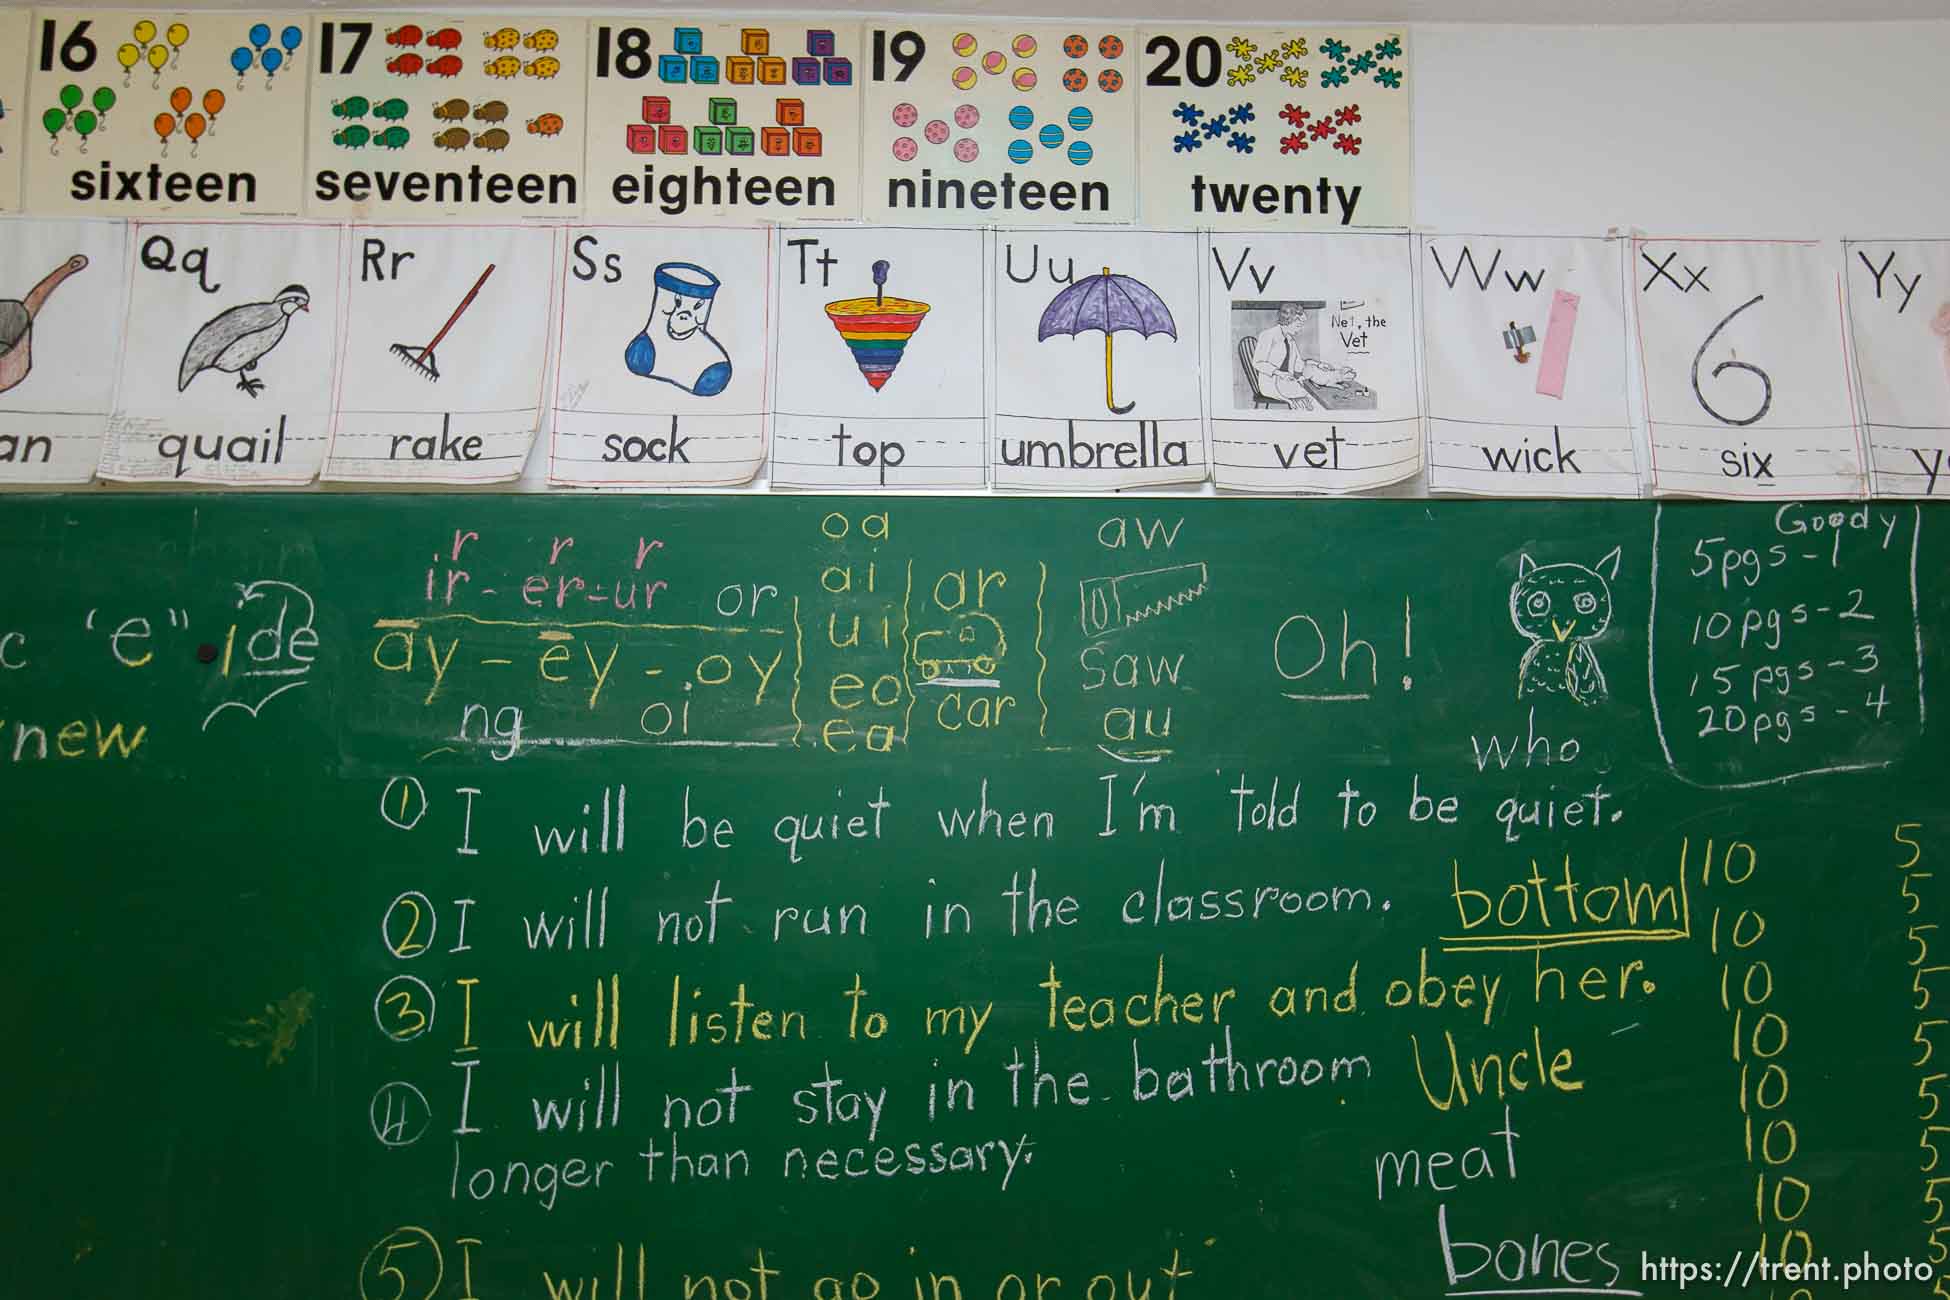 16 17 18 19 20
sixteen seventeen eighteen nineteen twenty
Qq Rr Ss Tt Uu Vv Ww Xx Yy
Net, the
Vet
an quail rake sock top umbrella vet wick six y
r r r
ir - er - ur or
ay - ey - oy
ng oi
oa
ai
ui
eo
ea
ar
car
aw
saw
au
Oh!
who
Goody
5pgs - 1
10pgs - 2
15pgs - 3
20pgs - 4
c "e" ide
new
1 I will be quiet when I'm told to be quiet.
2 I will not run in the classroom.
3 I will listen to my teacher and obey her.
4 I will not stay in the bathroom
longer than necessary.
5 I will not go in or out
bottom
Uncle
meat
bones
10 5
10 5
10 5
10 5
10 5
10 5
10 5
10 5
https://trent.photo